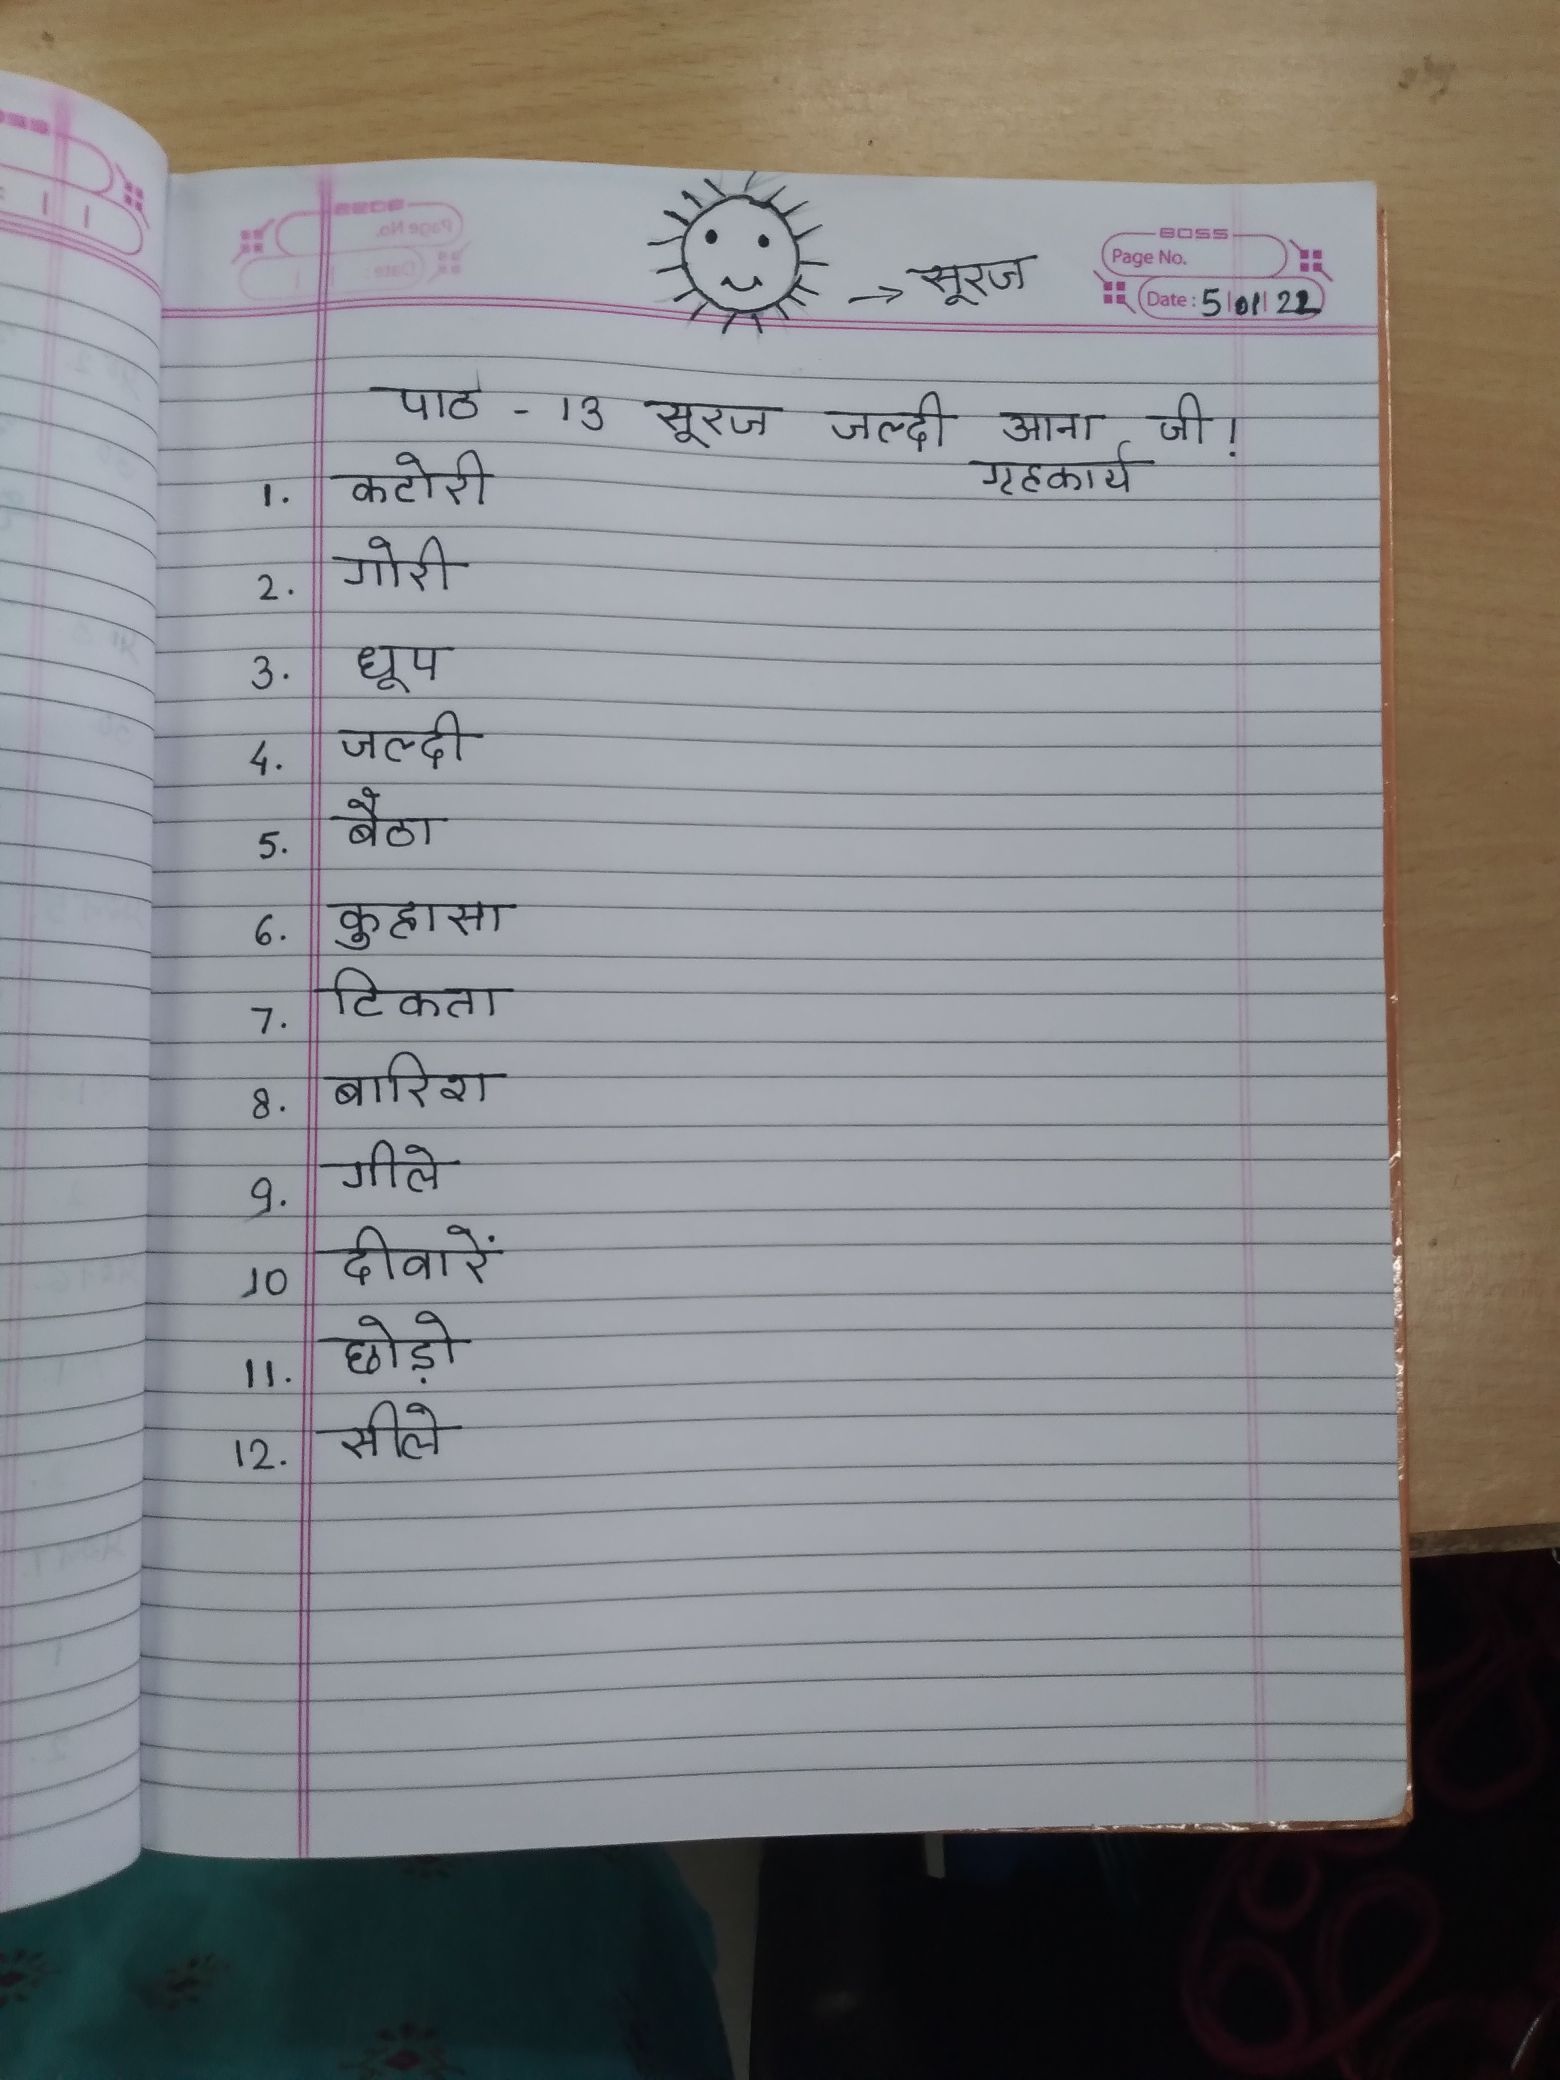 सूरज
BOSS
Page No.
Date: 5/01/22
पाठ - 13 सूरज जल्दी आना जी!
गृहकार्य
1. कटोरी
2. गोरी
3. धूप
4. जल्दी
5. बैठा
6. कुहासा
7. टिकता
8. बारिश
9. गीले
10 दीवारें
11. छोड़ो
12. सीले